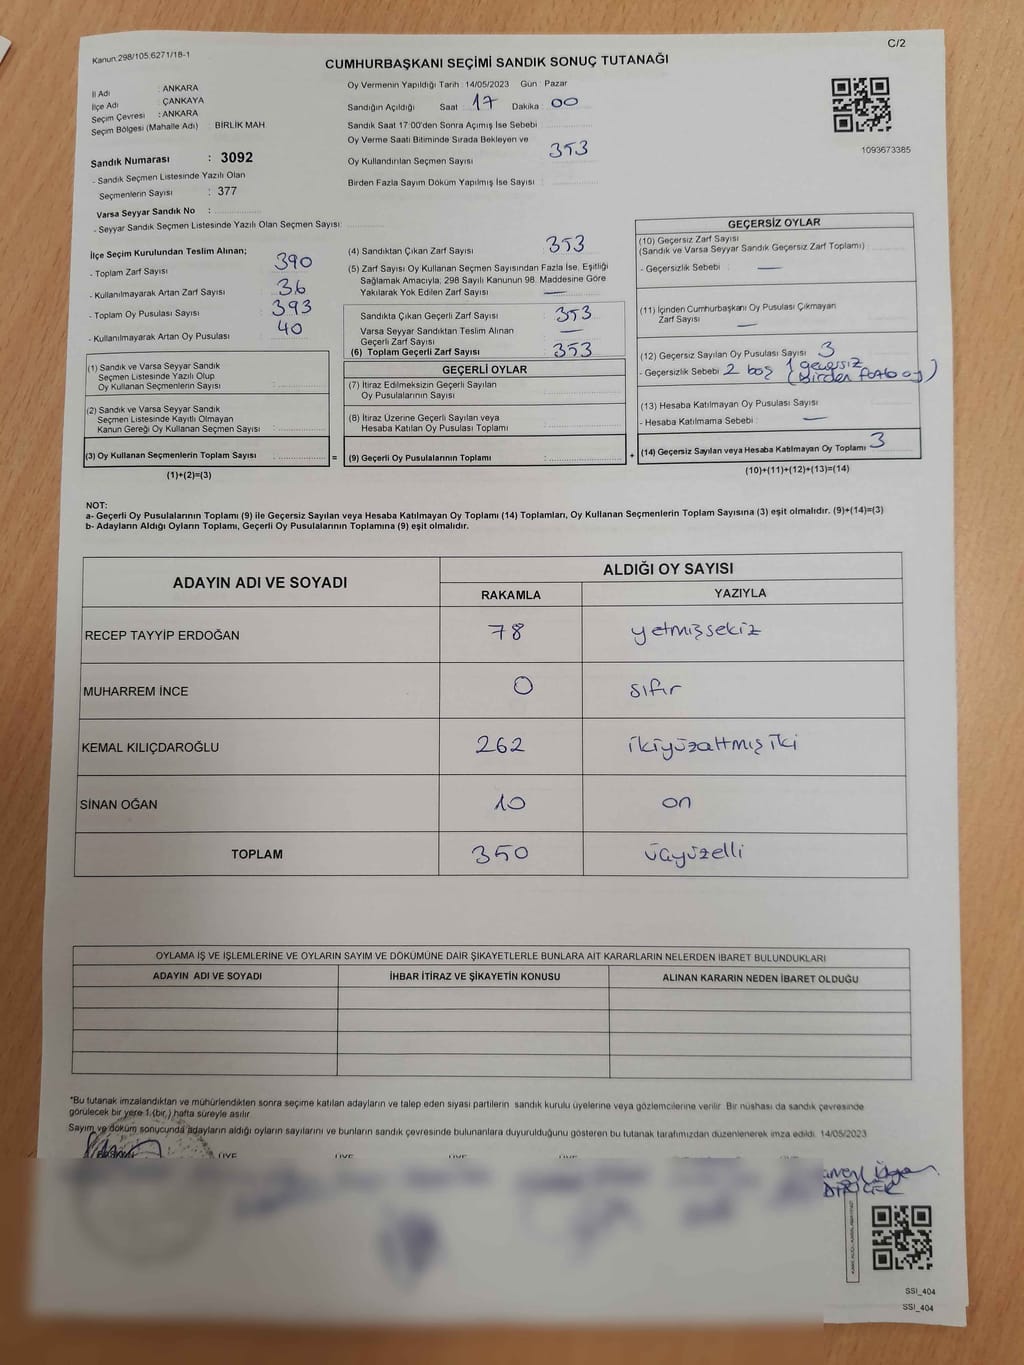 Kanun:298/105.6271/18-1
C/2
CUMHURBAŞKANI SEÇİMİ SANDIK SONUÇ TUTANAĞI
İl Adı : ANKARA
İlçe Adı : ÇANKAYA
Seçim Çevresi : ANKARA
Seçim Bölgesi (Mahalle Adı) : BİRLİK MAH.
Sandık Numarası : 3092
- Sandık Seçmen Listesinde Yazılı Olan
Seçmenlerin Sayısı : 377
Varsa Seyyar Sandık No :
- Seyyar Sandık Seçmen Listesinde Yazılı Olan Seçmen Sayısı:
Oy Vermenin Yapıldığı Tarih : 14/05/2023 Gün : Pazar
Sandığın Açıldığı Saat : 17 Dakika : 00
Sandık Saat 17:00'den Sonra Açımış İse Sebebi :
Oy Verme Saati Bitiminde Sırada Bekleyen ve
Oy Kullandırılan Seçmen Sayısı : 353
Birden Fazla Sayım Döküm Yapılmış İse Sayısı :
1093673385
İlçe Seçim Kurulundan Teslim Alınan;
- Toplam Zarf Sayısı : 390
- Kullanılmayarak Artan Zarf Sayısı : 36
- Toplam Oy Pusulası Sayısı : 393
- Kullanılmayarak Artan Oy Pusulası : 40
(1) Sandık ve Varsa Seyyar Sandık
Seçmen Listesinde Yazılı Olup
Oy Kullanan Seçmenlerin Sayısı :
(2) Sandık ve Varsa Seyyar Sandık
Seçmen Listesinde Kayıtlı Olmayan
Kanun Gereği Oy Kullanan Seçmen Sayısı :
(3) Oy Kullanan Seçmenlerin Toplam Sayısı : =
(1)+(2)=(3)
(4) Sandıktan Çıkan Zarf Sayısı : 353
(5) Zarf Sayısı Oy Kullanan Seçmen Sayısından Fazla İse, Eşitliği
Sağlamak Amacıyla, 298 Sayılı Kanunun 98. Maddesine Göre
Yakılarak Yok Edilen Zarf Sayısı : —
Sandıkta Çıkan Geçerli Zarf Sayısı : 353
Varsa Seyyar Sandıktan Teslim Alınan
Geçerli Zarf Sayısı : —
(6) Toplam Geçerli Zarf Sayısı : 353
GEÇERLİ OYLAR
(7) İtiraz Edilmeksizin Geçerli Sayılan
Oy Pusulalarının Sayısı :
(8) İtiraz Üzerine Geçerli Sayılan veya
Hesaba Katılan Oy Pusulası Toplamı :
(9) Geçerli Oy Pusulalarının Toplamı : +
GEÇERSİZ OYLAR
(10) Geçersiz Zarf Sayısı
(Sandık ve Varsa Seyyar Sandık Geçersiz Zarf Toplamı) :
- Geçersizlik Sebebi : —
(11) İçinden Cumhurbaşkanı Oy Pusulası Çıkmayan
Zarf Sayısı : —
(12) Geçersiz Sayılan Oy Pusulası Sayısı : 3
- Geçersizlik Sebebi : 2 boş 1 geçersiz
(birden fazla oy)
(13) Hesaba Katılmayan Oy Pusulası Sayısı :
- Hesaba Katılmama Sebebi : —
(14) Geçersiz Sayılan veya Hesaba Katılmayan Oy Toplamı : 3
(10)+(11)+(12)+(13)=(14)
NOT:
a- Geçerli Oy Pusulalarının Toplamı (9) ile Geçersiz Sayılan veya Hesaba Katılmayan Oy Toplamı (14) Toplamları, Oy Kullanan Seçmenlerin Toplam Sayısına (3) eşit olmalıdır. (9)+(14)=(3)
b- Adayların Aldığı Oyların Toplamı, Geçerli Oy Pusulalarının Toplamına (9) eşit olmalıdır.
ADAYIN ADI VE SOYADI
ALDIĞI OY SAYISI
RAKAMLA YAZIYLA
RECEP TAYYİP ERDOĞAN 78 yetmişsekiz
MUHARREM İNCE 0 sıfır
KEMAL KILIÇDAROĞLU 262 ikiyüzaltmış iki
SİNAN OĞAN 10 on
TOPLAM 350 üçyüzelli
OYLAMA İŞ VE İŞLEMLERİNE VE OYLARIN SAYIM VE DÖKÜMÜNE DAİR ŞİKAYETLERLE BUNLARA AİT KARARLARIN NELERDEN İBARET BULUNDUKLARI
ADAYIN ADI VE SOYADI İHBAR İTİRAZ VE ŞİKAYETİN KONUSU ALINAN KARARIN NEDEN İBARET OLDUĞU
*Bu tutanak imzalandıktan ve mühürlendikten sonra seçime katılan adayların ve talep eden siyasi partilerin sandık kurulu üyelerine veya gözlemcilerine verilir. Bir nüshası da sandık çevresinde
görülecek bir yere 1 (bir) hafta süreyle asılır.
Sayım ve döküm sonucunda adayların aldığı oyların sayılarını ve bunların sandık çevresinde bulunanlara duyurulduğunu gösteren bu tutanak tarafımızdan düzenlenerek imza edildi. 14/05/2023
ÜYE ÜYE ÜYE ÜYE
SSI_404
SSI_404